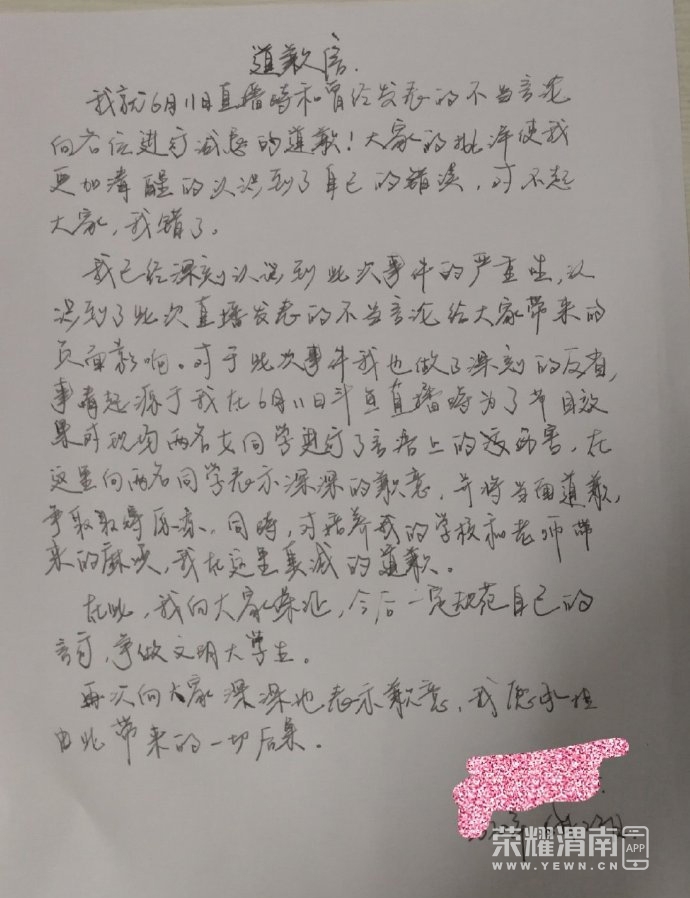 道歉信.
我就6月11日直播时和曾经发表的不当言论
向各位进行诚恳的道歉！大家的批评使我
更加清醒的认识到了自己的错误，对不起
大家，我错了。
我已经深刻认识到此次事件的严重性，认
识到了此次直播发表的不当言论给大家带来的
负面影响。对于此次事件我也做了深刻的反省，
事情起源于我在6月11日斗鱼直播时为了节目效
果对现场两名女同学进行了言语上的伤害，在
这里向两名同学表示深深的歉意，并将当面道歉，
争取取得原谅，同时，对培养我的学校和老师带
来的麻烦，我在这里真诚的道歉。
在此，我向大家保证，今后一定规范自己的
言行，争做文明大学生。
再次向大家深深地表示歉意，我愿承担
由此带来的一切后果。
荣耀渭南 APP
WWW.YEWN.CN